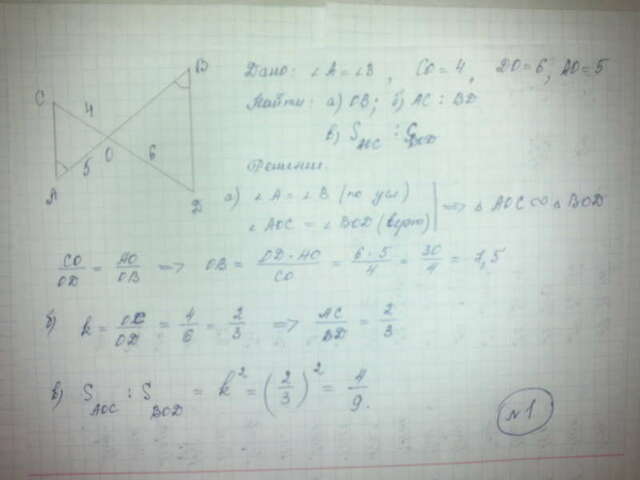 Дано: ∠A = ∠B, CO = 4, DO = 6, AO = 5
Найти: а) OB; б) AC : BD
в) S_AOC : S_BOD
C 4 B
A 5 O 6 D
Решение.
а) ∠A = ∠B (по усл)
∠AOC = ∠BOD (верт) => △AOC ∞ △BOD
CO/OD = AO/OB => OB = OD·AO/CO = 6·5/4 = 30/4 = 7,5
б) k = OC/OD = 4/6 = 2/3 => AC/BD = 2/3
в) S_AOC : S_BOD = k² = (2/3)² = 4/9.
№1